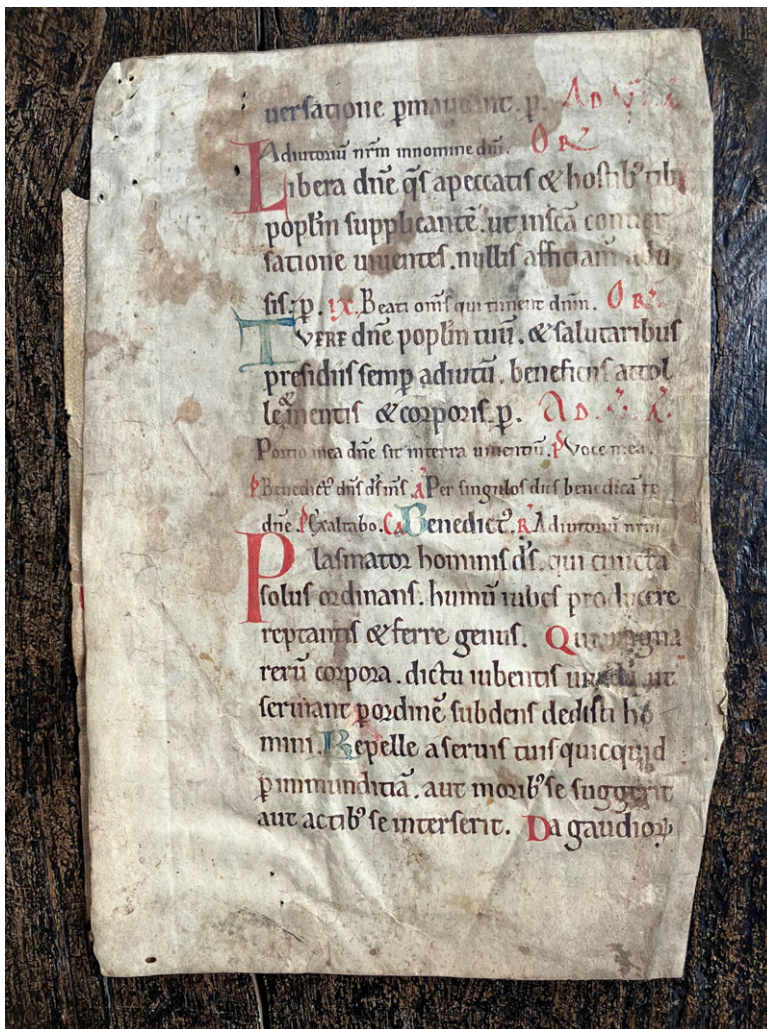 uersatione ꝑmaneant. ꝑ. AD VI. A
Adiutoriū nrm̄ innomine dn̄i. OR
Libera dn̄e q̄s apeccatis & hostibꝰ tibi
popl̄m supplicantē. ut insc̄a conuer
satione uiuentes. nullis afficiant᷑ adu
sis. ꝑ. IX. Beati om̄s qui timent dnm̄. OR.
TVERE dn̄e popl̄m tuū. & salutaribus
presidiis semꝑ adiutū. beneficiis attol
le & mentis & corporis. ꝑ. AD. V. A.
Portio mea dn̄e sit interra uiuentiū. P̄ Voce mea.
P̄ Benedictꝰ dn̄s ds̄ m̄s. A Per singulos dies benedicā te
dn̄e. P̄ Exaltabo. CA Benedictꝰ. R Adiutoriū nrm̄
Plasmator hominis ds̄. qui cuncta
solus ordinans. humū iubes producere
reptantis & ferre genus. Qui magna
rerū corpora. dictu iubentis uiuida. ut
seruiant ꝑ ordinē subdens dedisti ho
mini. Repelle a seruis tuis quicquid
ꝑ inmunditiā. aut moribꝰ se suggerit
aut actibꝰ se interserit. Da gaudioꝝ